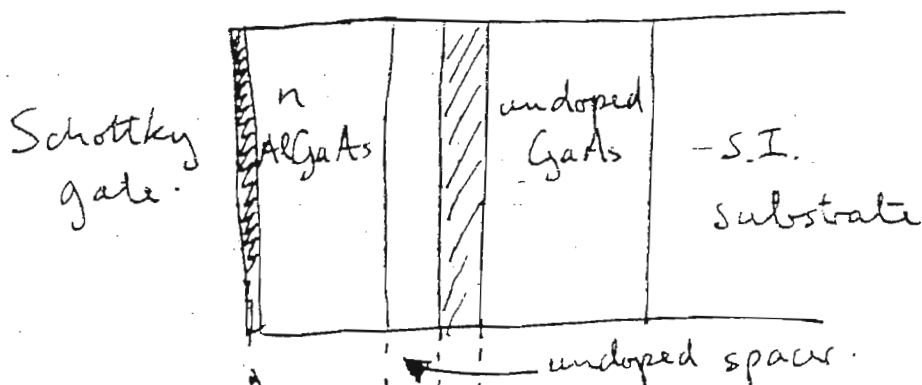 Schottky
gate.
n
AlGaAs
undoped
GaAs
S.I.
substrate
undoped spacer.